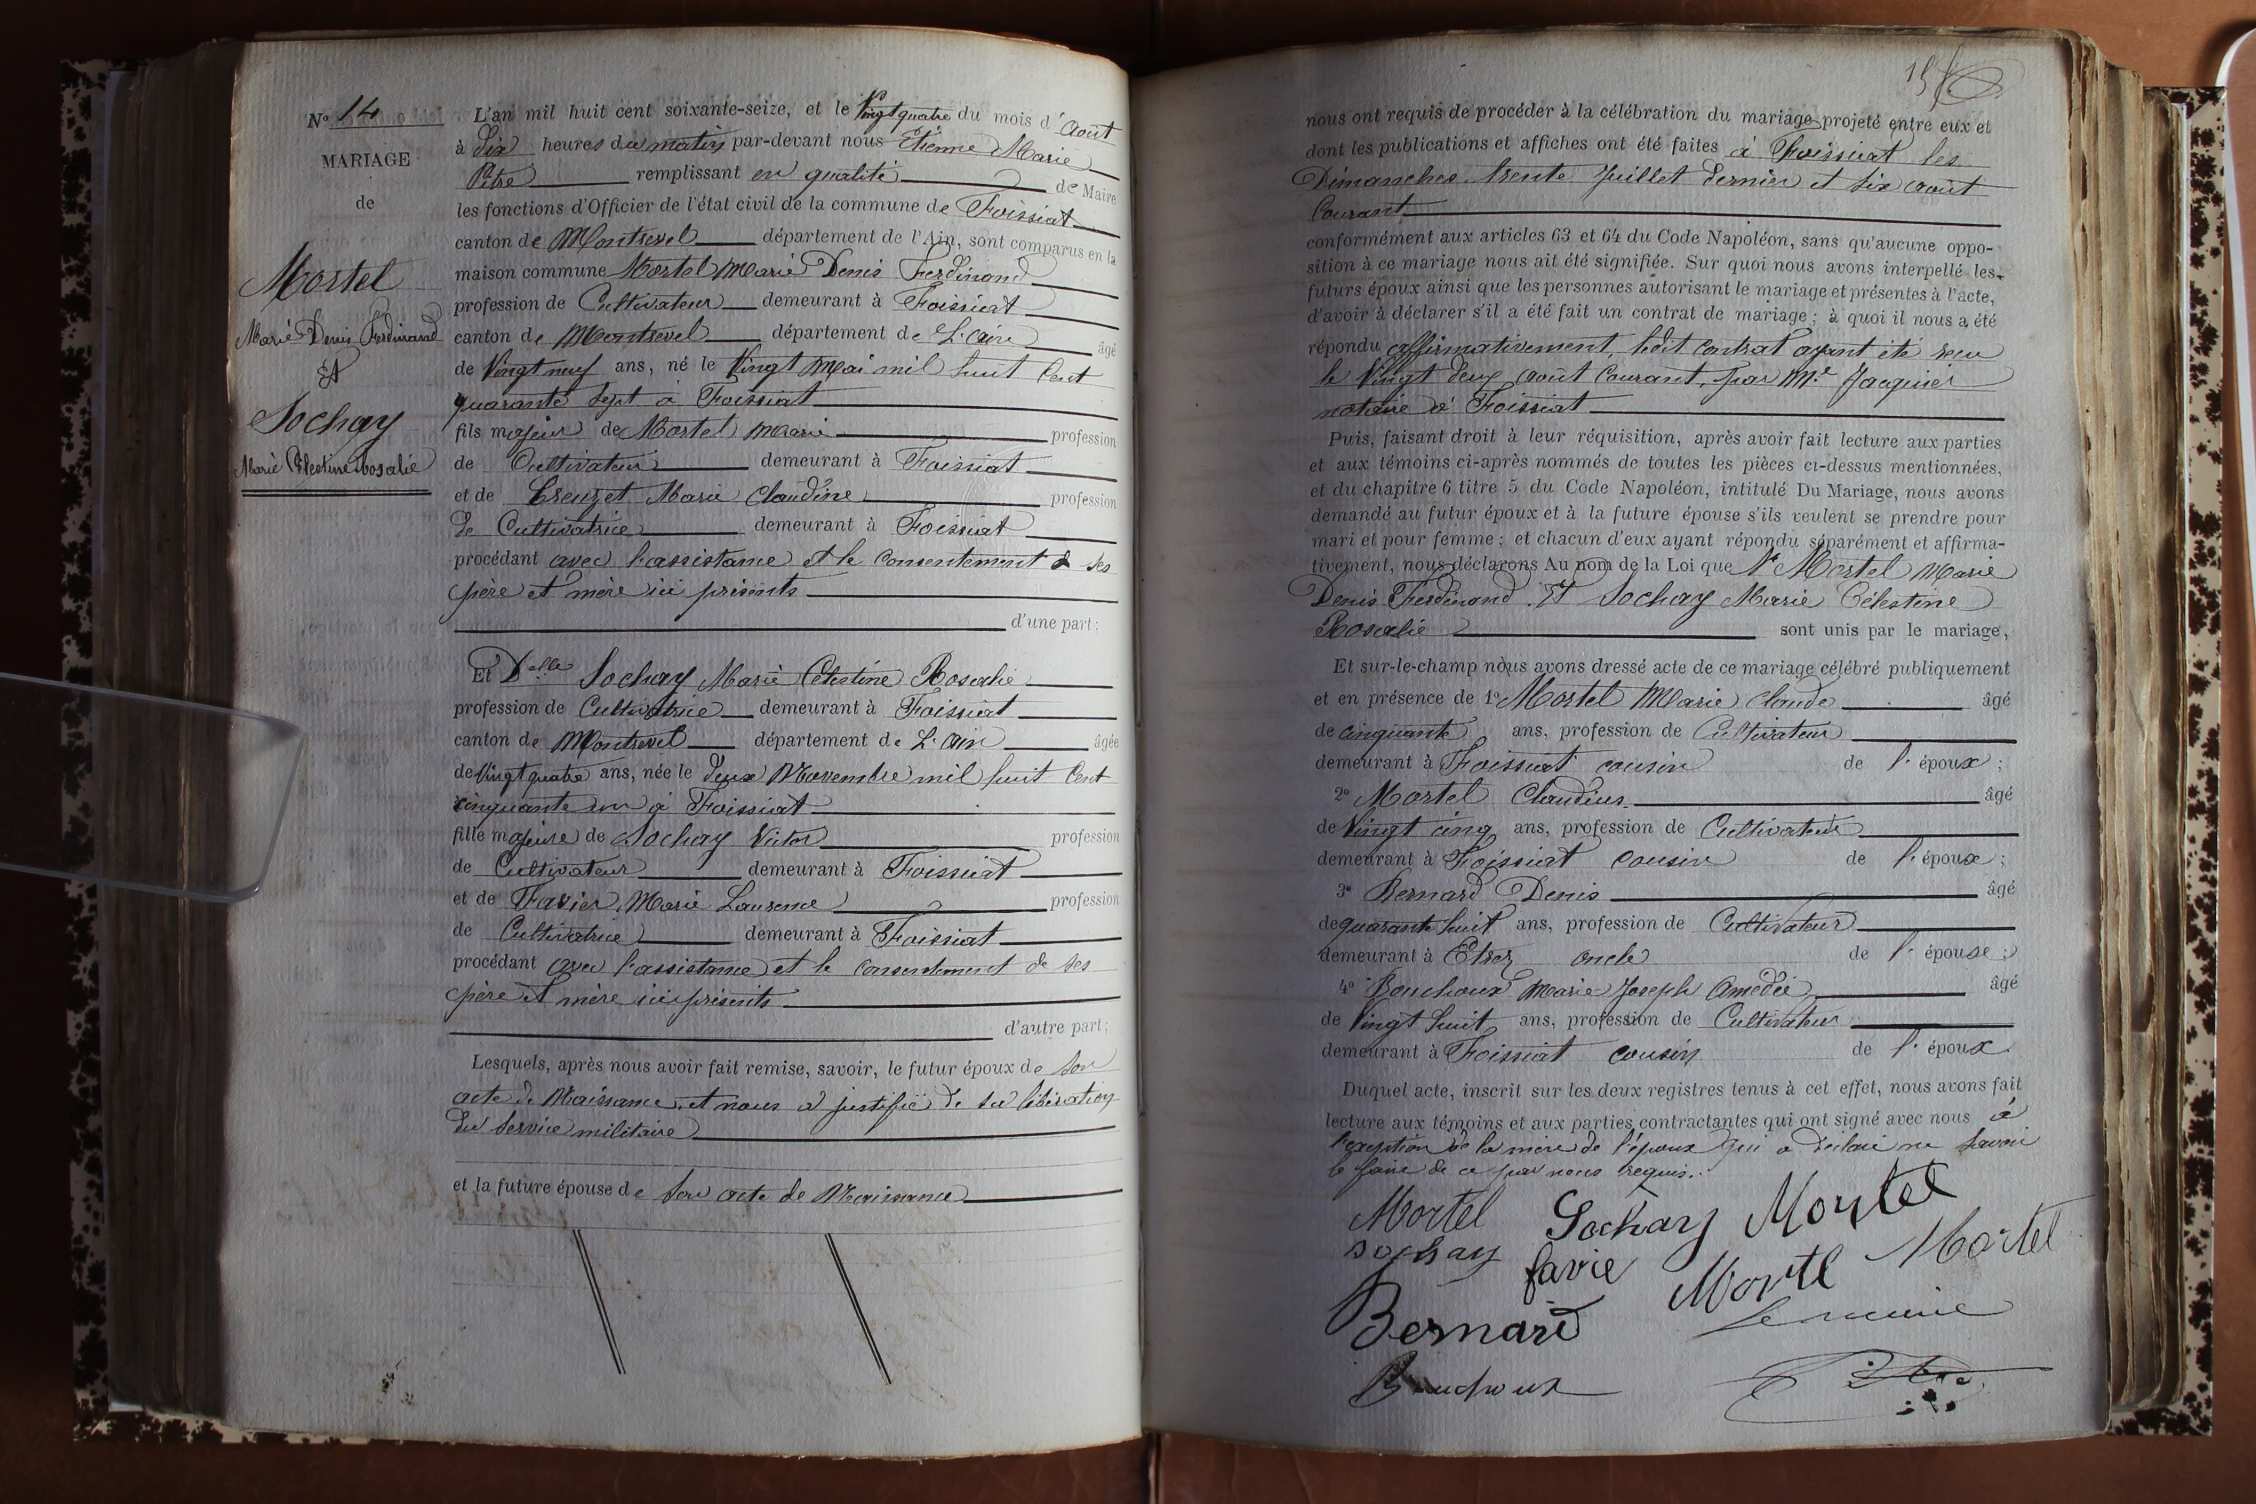 N° 14
MARIAGE
de
Mortel
Marie Denis Ferdinand
Et
Sochay
Marie Célestine Rosalie
L'an mil huit cent soixante-seize, et le Vingt quatre du mois d'août
à dix heures du matin par-devant nous Etienne Marie
Pitre remplissant en qualité de Maire
les fonctions d'Officier de l'état civil de la commune de Foissiat
canton de Montrevel département de l'Ain, sont comparus en la
maison commune Mortel Marie Denis Ferdinand
profession de Cultivateur demeurant à Foissiat
canton de Montrevel département de L'ain âgé
de Vingt neuf ans, né le Vingt Mai mil huit Cent
quarante Sept à Foissiat
fils majeur de Mortel Marie profession
de Cultivateur demeurant à Foissiat
et de Creuzet Marie Claudine profession
de Cultivatrice demeurant à Foissiat
procédant avec l'assistance et le consentement de ses
père et mère ici présents
d'une part;
Et Delle Sochay Marie Célestine Rosalie
profession de Cultivatrice demeurant à Foissiat
canton de Montrevel département de L'ain âgée
de Vingt quatre ans, née le deux Novembre mil huit Cent
cinquante un à Foissiat
fille majeure de Sochay Victor profession
de Cultivateur demeurant à Foissiat
et de Favier Marie Laurence profession
de Cultivatrice demeurant à Foissiat
procédant avec l'assistance et le consentement de ses
père et mère ici présents
d'autre part;
Lesquels, après nous avoir fait remise, savoir, le futur époux de Son
acte de Naissance, et nous a justifié de sa libération
du Service militaire
et la future épouse de Son acte de Naissance
nous ont requis de procéder à la célébration du mariage projeté entre eux et
dont les publications et affiches ont été faites à Foissiat les
Dimanches trente Juillet dernier et six août
Courant
conformément aux articles 63 et 64 du Code Napoléon, sans qu'aucune oppo-
sition à ce mariage nous ait été signifiée. Sur quoi nous avons interpellé les
futurs époux ainsi que les personnes autorisant le mariage et présentes à l'acte,
d'avoir à déclarer s'il a été fait un contrat de mariage; à quoi il nous a été
répondu affirmativement, ledit Contrat ayant été reçu
le Vingt deux août Courant, par Me Jacquier
notaire à Foissiat
Puis, faisant droit à leur réquisition, après avoir fait lecture aux parties
et aux témoins ci-après nommés de toutes les pièces ci-dessus mentionnées,
et du chapitre 6 titre 5 du Code Napoléon, intitulé Du Mariage, nous avons
demandé au futur époux et à la future épouse s'ils veulent se prendre pour
mari et pour femme; et chacun d'eux ayant répondu séparément et affirma-
tivement, nous déclarons Au nom de la Loi que Mortel Marie
Denis Ferdinand Et Sochay Marie Célestine
Rosalie sont unis par le mariage,
Et sur-le-champ nous avons dressé acte de ce mariage célébré publiquement
et en présence de 1° Mortel Marie Claude âgé
de cinquante ans, profession de Cultivateur
demeurant à Foissiat cousin de l'époux;
2° Mortel Claudius âgé
de Vingt cinq ans, profession de Cultivateur
demeurant à Foissiat cousin de l'époux;
3° Bernard Denis âgé
de quarante huit ans, profession de Cultivateur
demeurant à Etrez oncle de l'épouse;
4° Bouchoux Marie Joseph Amédée âgé
de Vingt huit ans, profession de Cultivateur
demeurant à Foissiat cousin de l'époux.
Duquel acte, inscrit sur les deux registres tenus à cet effet, nous avons fait
lecture aux témoins et aux parties contractantes qui ont signé avec nous à
l'exception de la mère de l'époux qui a déclaré ne Savoir
le faire de ce par nous requis.
Mortel Sochay Mortel
Sochay favie Mortel Mortel
Bernard Le maire
Bouchoux Pitre